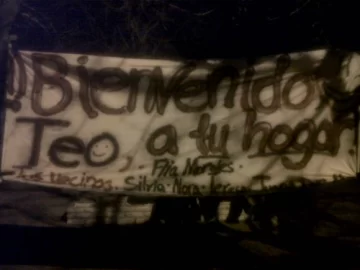 ¡¡Bienvenido
Teo, a tu hogar!
- Flia Morales -
Tus vecinos. Silvia - Nora -